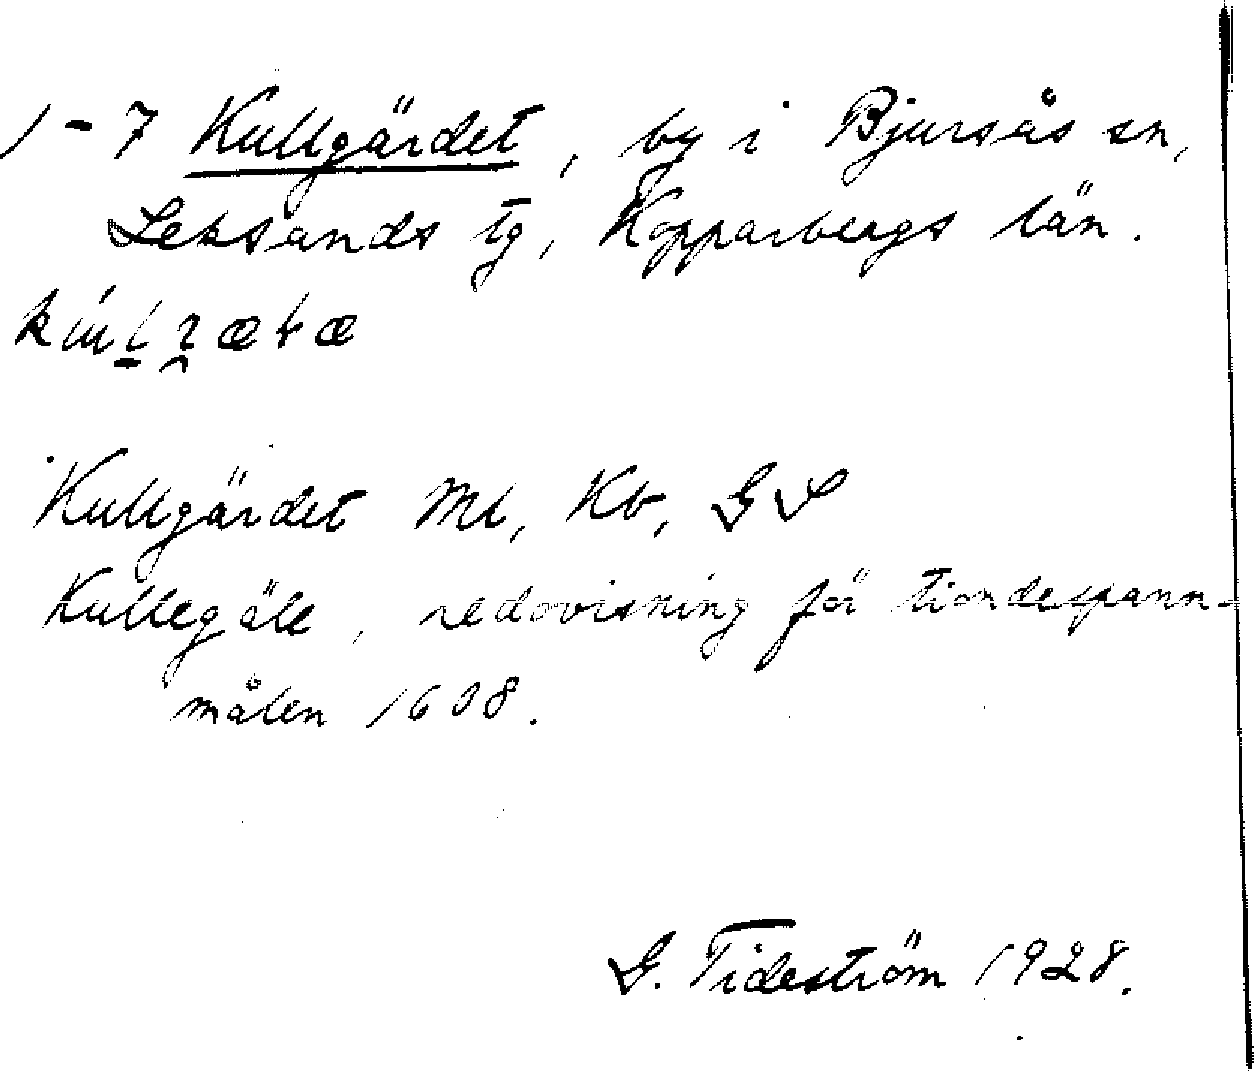 1-7 Kullgärdet, by i Bjursås sn,
Leksands tg, Kopparbergs län.
Kullgärdet Ml, Kb, GS
Kullegäle, redovisning för tiondespann-
målen 1608.
G. Tideström 1928.